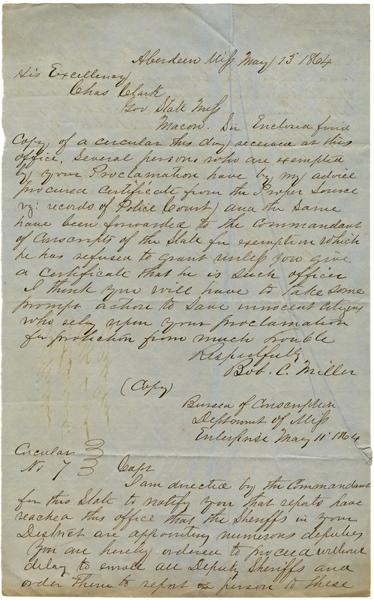 Aberdeen Miss May 15 1864
His Excellency
Chas Clark
Gov State Miss
Macon. Sir Enclosed find
Copy of a circular this day received at this
office. Several persons who are exempted
by your Proclamation have by my advice
procured Certificate from the Proper Source
vz: records of Police Court) and the same
have been forwarded to the Commandant
of Conscripts of the State for exemption which
he has refused to grant unless you give
a Certificate that he is such officer
I think you will have to take some
prompt action to save innocent citizens
who rely upon your proclamation
for protection from much trouble
Respectfully
Bob. C. Miller
(Copy)
Bureau of Conscription
Department of Miss
Enterprise May 11th 1864
Circular
No 7
Capt
I am directed by the Commandant
for this State to notify you that reports have
reached this office that the Sheriffs in your
District are appointing numerous deputies
You are hereby ordered to proceed without
delay to enroll all Deputy Sheriffs and
order them to report in person to these